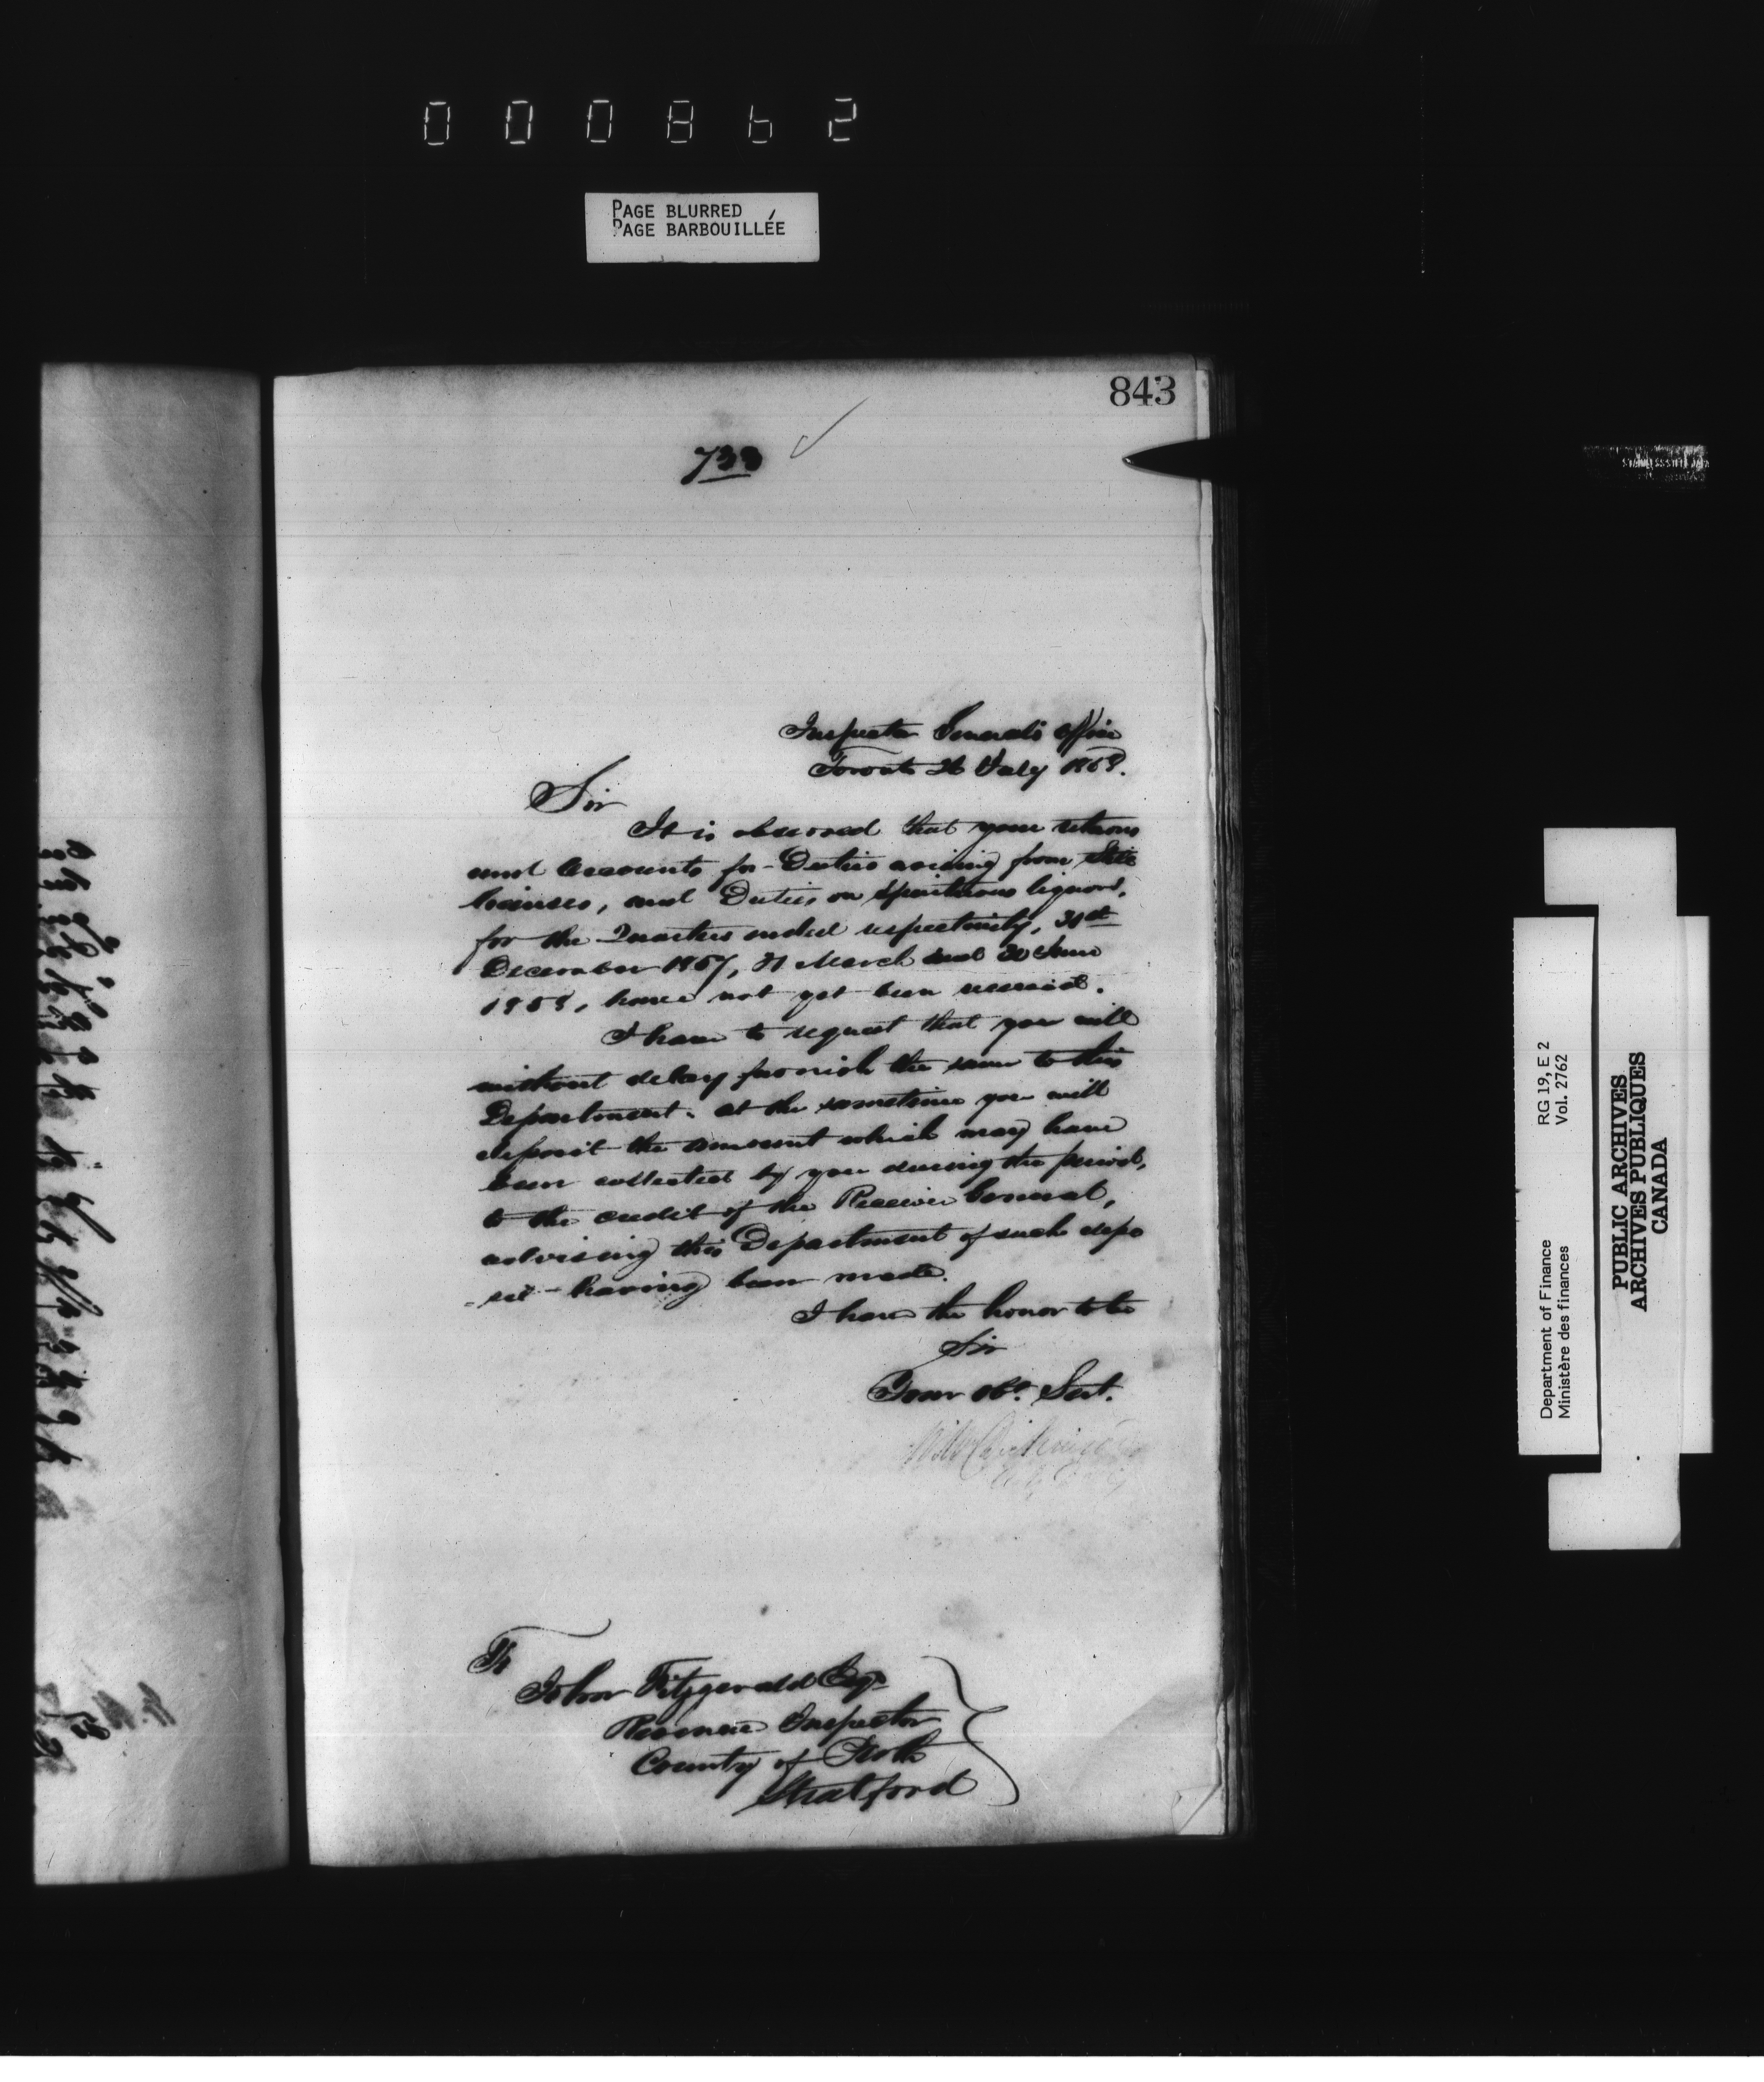 000862
PAGE BLURRED
PAGE BARBOUILLÉE
843
733
Inspector General's Office
Toronto 26 July 1858.
Sir
It is observed that your returns
and Accounts for Duties arising from Still
licenses, and Duties on Spirituous liquors,
for the Quarters ended respectively, 31st
December 1857, 31 March and 30 June
1858, have not yet been received.
I have to request that you will
without delay furnish the same to this
Department. at the sametime you will
deposit the amount which may have
been collected by you during the period,
to the credit of the Receiver General,
advising this Department of such depo
-sit having been made.
I have the honor to be
Sir
Your Obt. Servt.
To
John Fitzgerald Esqr
Revenue Inspector
County of Perth
Stratford
Department of Finance
Ministère des finances
RG 19, E 2
Vol. 2762
PUBLIC ARCHIVES
ARCHIVES PUBLIQUES
CANADA